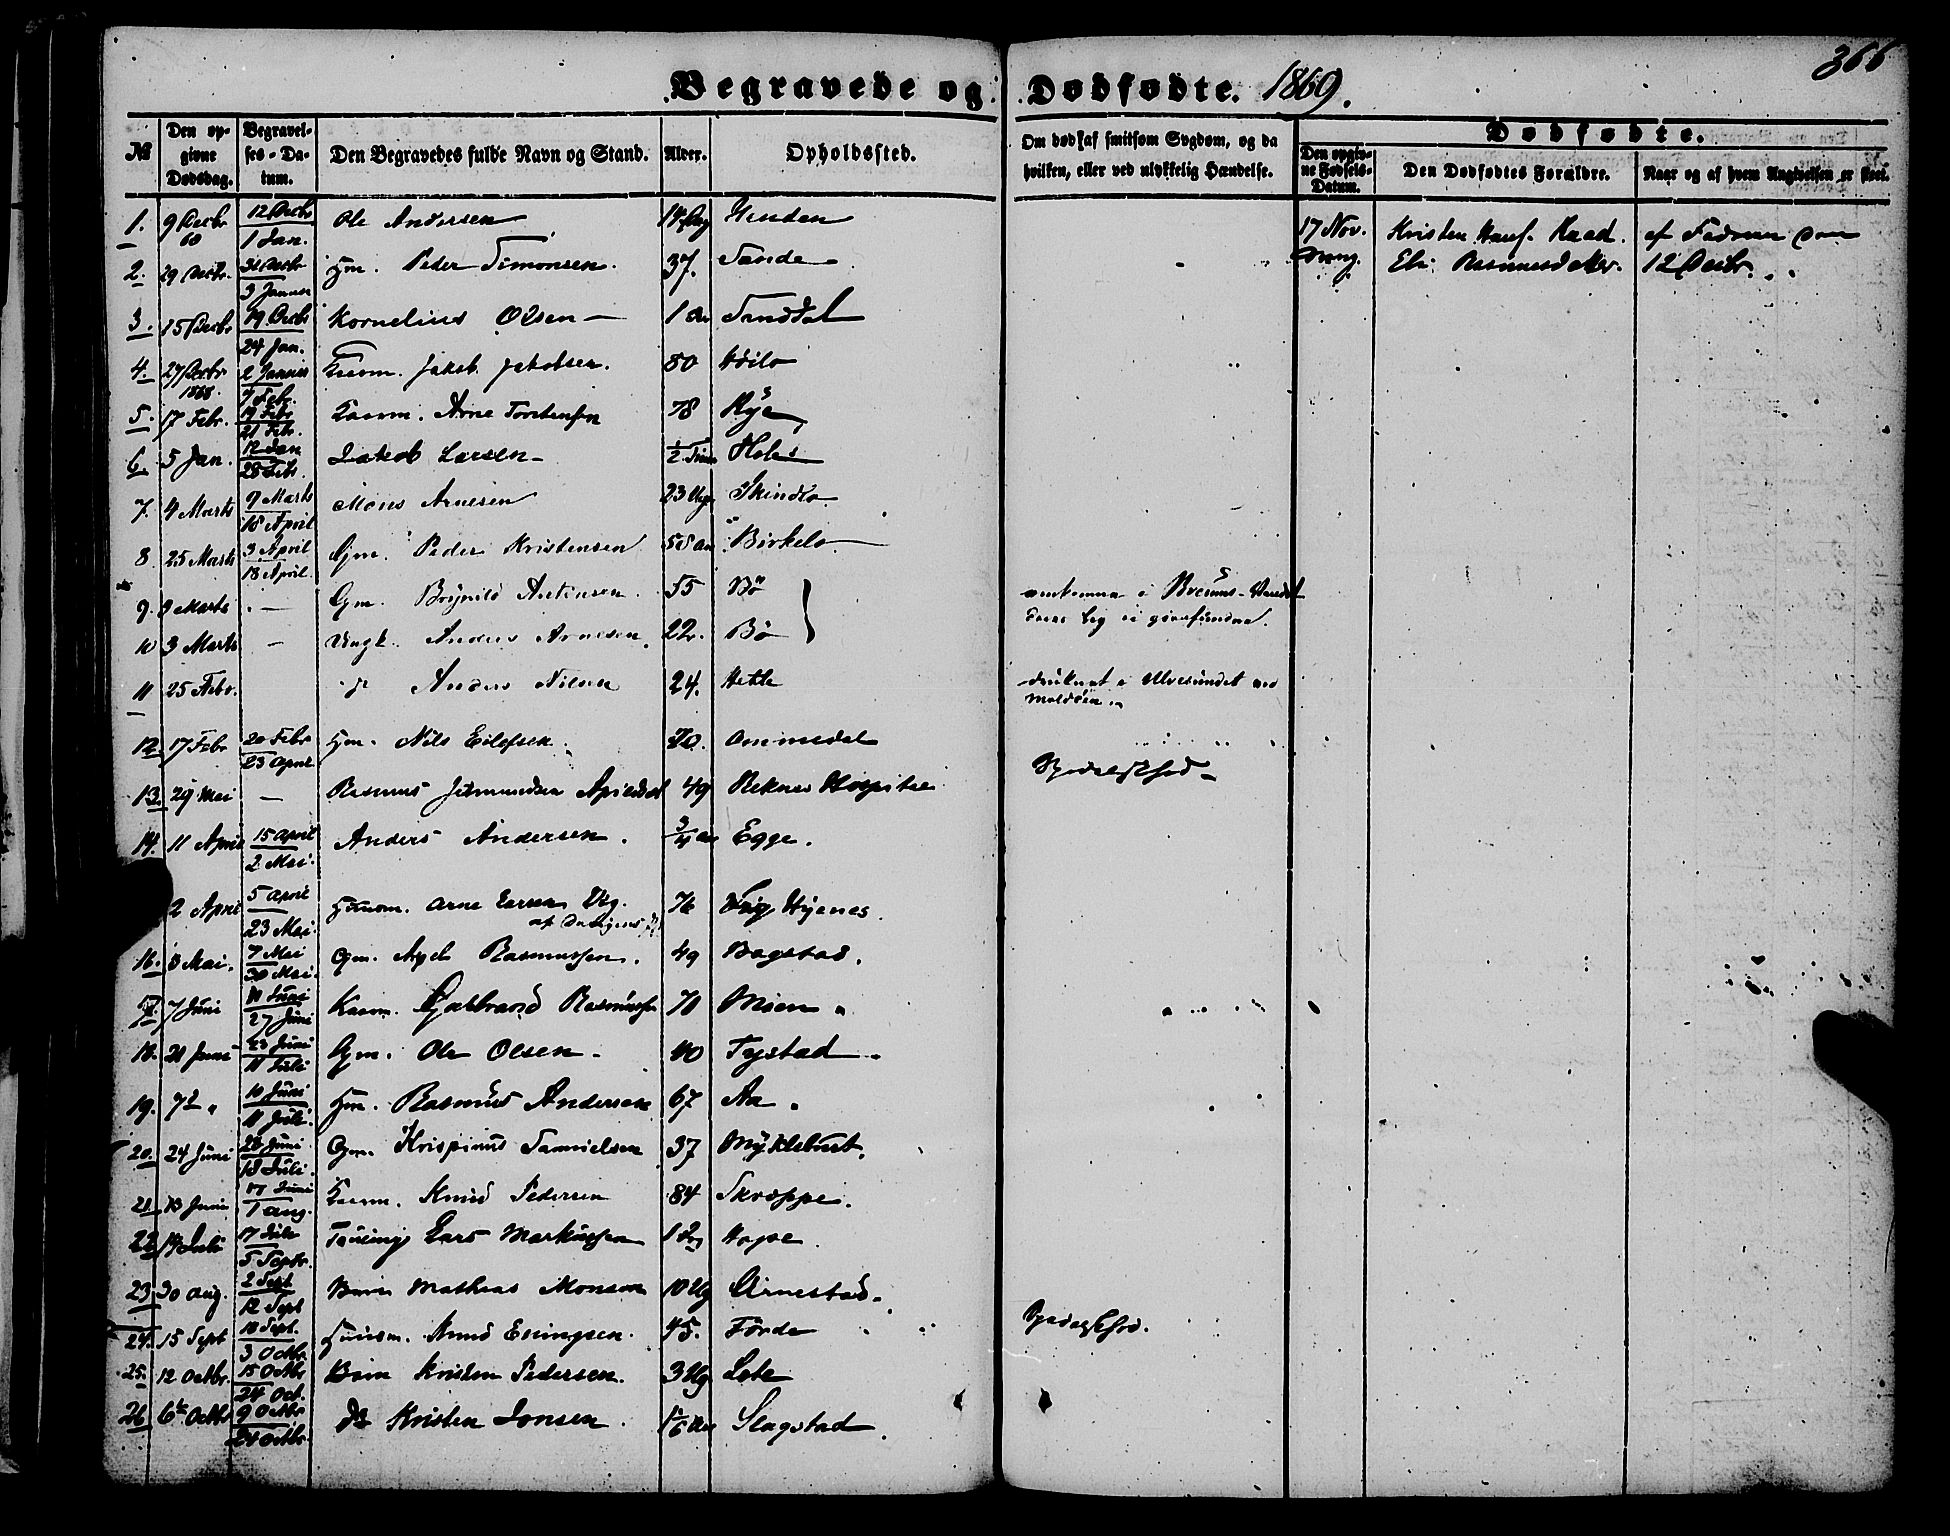 366
Begravede og Dødfødte. 1869.
№ Den opgivne Dødsdag. Begravelses-Datum. Den Begravedes fulde Navn og Stand. Alder. Opholdssted. Om død af smitsom Sygdom, og da hvilken, eller ved ulykkelig Hændelse. Dødfødte. Den opgivne Fødsels-Datum. Den Dødfødtes Forældre. Naar og af hvem Angivelsen er skeet.
1. 9 Decbr 12 Decbr 1 Jan. Ole Andersen 14 Dag Henden 17 Nov. Kristen Hansf. Raad. af Faderen
2. 29 Decbr. 31 Decbr 3 Januar Gm. Peder Simonsen. 37. Sande Eli Rasmusd 12 Decbr.
3. 15 Decbr 19 Decbr 24 Jan. Kornelius Olsen 1 Aar Sanddal
4. 27 Decbr 1868. 2 Januar 7 Febr. Kaarm. Jakob Jakobsen. 80 Høilo
5. 17 Febr. 19 Febr 21 Febr. Kaarm. Arne Torstensen 78 Rye
6. 5 Jan. 12 Jan 28 Febr. Jakob Larsen 1/2 Time Holm
7. 4 Marts 9 Marts 18 April Mons Arnesen 23 Ugr Skindlo
8. 25 Marts 3 April 18 April. Gm. Peder Kristensen 55 Aar Birkelo
9. 3 Marts — Gm. Brynild Antonsen. 55 Bø omkommen i Breums-Vandet
10 3 Marts — Ungk. Anders Arnesen. 22. Bø Deres Lig ei gjenfundne.
11 25 Febr. Anders Nilsen 24. Hetle druknet i Ulvesundet ved
Moldøen.
12. 17 Febr 20 Febr 23 April Gm. Nils Eilefsen 70. Ommedal
13. 29 Mai — Rasmus 49 Reknes Hospital Spedalskhed
14. 11 April 15 April 2 Mai. Anders Andersen. 3/4 Aar Egge.
2 April 5 April 23 Mai. Huusm. Arne Larsen 76 Hjenes.
16. 3 Mai. 7 Mai 30 Mai. Gm. Rasmussen. 49 Bogstad.
17. 7 Juni 11 Juni 27 Juni Kaarm. Gulbrand Rasmussen 70 Moen
18. 20 Juni 23 Juni 11 Juli Gm. Ole Olsen 40 Tystad
19. 7d 10 Juni 11 Juli. Gm. Rasmus Andersen 67 Aa
20. 24 Juni 28 Juni 18 Juli. Gm. Krispinus Samuelsen 37 Myklebust.
21. 13 Juni 17 Juni 1 Aug. Kaarm. Knud Pedersen 84 Skroppe.
22. 14 Juli 17 Juli 5 Septr. Tvilling Lars Markussen 1 Dag Hope
23. 30 Aug. 2 Sept 12 Sept Barn Mathias Monsen 10 Ug Arnestad.
24. 15 Sept 18 Sept. 3 Octbr Huusm. Arund Enningsen. 45. Førde Spedalskhed.
25. 12 Octbr. 15 Octbr 24 Oct. Barn Kristen Pedersen. 3 Ug Lote
26 6te Octbr 9 Octbr 24 Octbr. do Kristen Jonsen 1/6 Aar Slagstad.